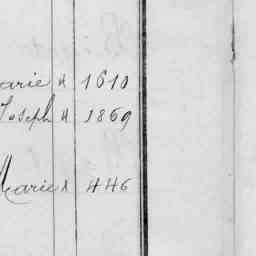 arie " 1610
Joseph " 1869
Marie " 446